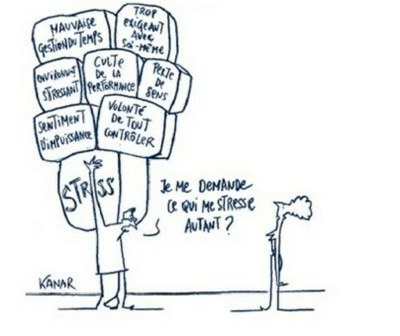 MAUVAISE
GESTION DU TEMPS
TROP
EXIGEANT
AVEC
SOI-MÊME
ENVIRONNMT
STRESSANT
CULTE
DE LA
PERFORMANCE
PERTE
DE
SENS
SENTIMENT
D'IMPUISSANCE
VOLONTÉ
DE TOUT
CONTRÔLER
STRESS
JE ME DEMANDE
CE QUI ME STRESSE
AUTANT ?
KANAR